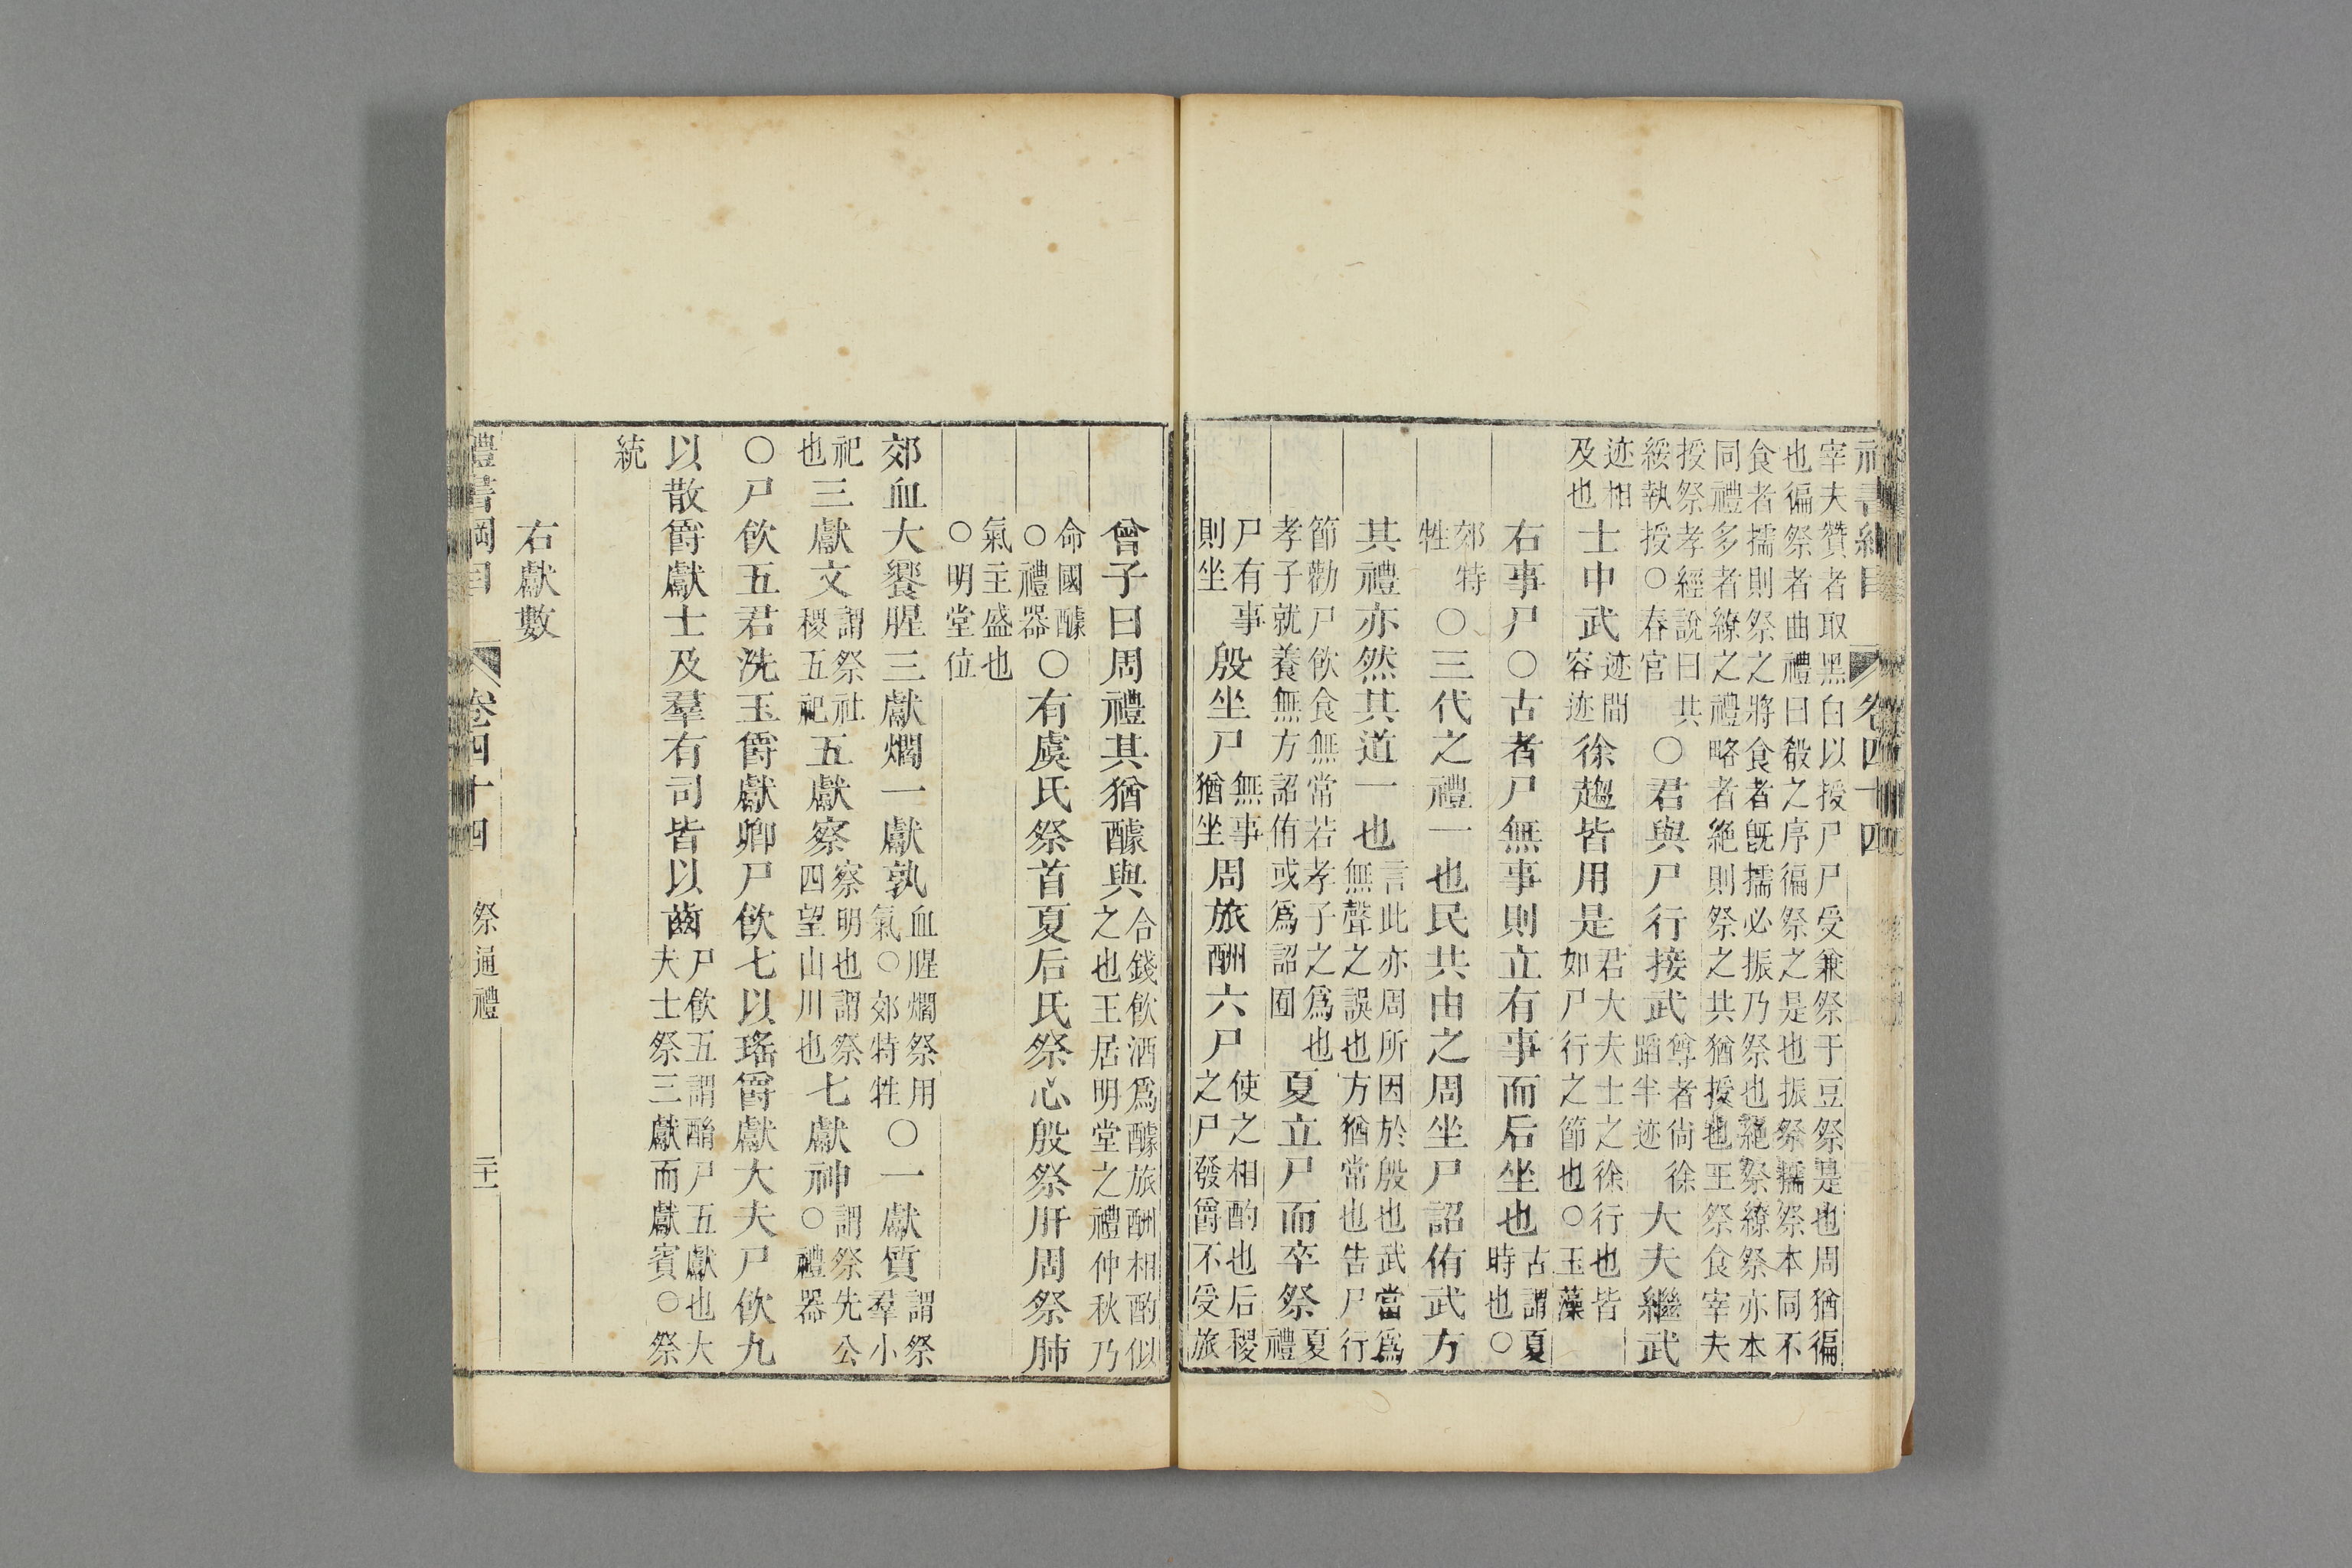 禮書綱目 卷四十四
宰夫贊者取黑白以授尸尸受兼祭于豆祭是也周猶徧
也徧祭者曲禮曰殽之序徧祭之是也振祭擩祭本同不
食者擩則祭之將食者旣擩必振乃祭也絕祭繚祭亦本
同禮多者繚之禮略者絕則祭之共猶授也王祭食宰夫
授祭孝經說曰共綏執授○春官○君與尸行接武尊者尚徐蹈半迹大夫繼武
迹相及也士中武迹間容迹徐趨皆用是君大夫士之徐行也皆如尸行之節也○玉藻
右事尸○古者尸無事則立有事而后坐也古謂夏時也○
郊特牲○三代之禮一也民共由之周坐尸詔侑武方
其禮亦然其道一也言此亦周所因於殷也武當爲無聲之誤也方猶常也告尸行
節勸尸飲食無常若孝子之爲也孝子就養無方詔侑或爲詔囿夏立尸而卒祭夏禮
尸有事則坐殷坐尸無事猶坐周旅酬六尸使之相酌也后稷之尸發爵不受旅
曾子曰周禮其猶醵與合錢飲酒爲醵旅酬相酌似之也王居明堂之禮仲秋乃
命國醵○禮器○有虞氏祭首夏后氏祭心殷祭肝周祭肺
氣主盛也○明堂位
郊血大饗腥三獻爓一獻孰血腥爓祭用氣○郊特牲○一獻質謂祭羣小
祀也三獻文謂祭社稷五祀五獻察察明也謂祭四望山川也七獻神謂祭先公○禮器
○尸飲五君洗玉爵獻卿尸飲七以瑤爵獻大夫尸飲九
以散爵獻士及羣有司皆以齒尸飲五謂酳尸五獻也大夫士祭三獻而獻賓○祭
統
右獻數
禮書綱目 卷四十四 祭通禮 二十一